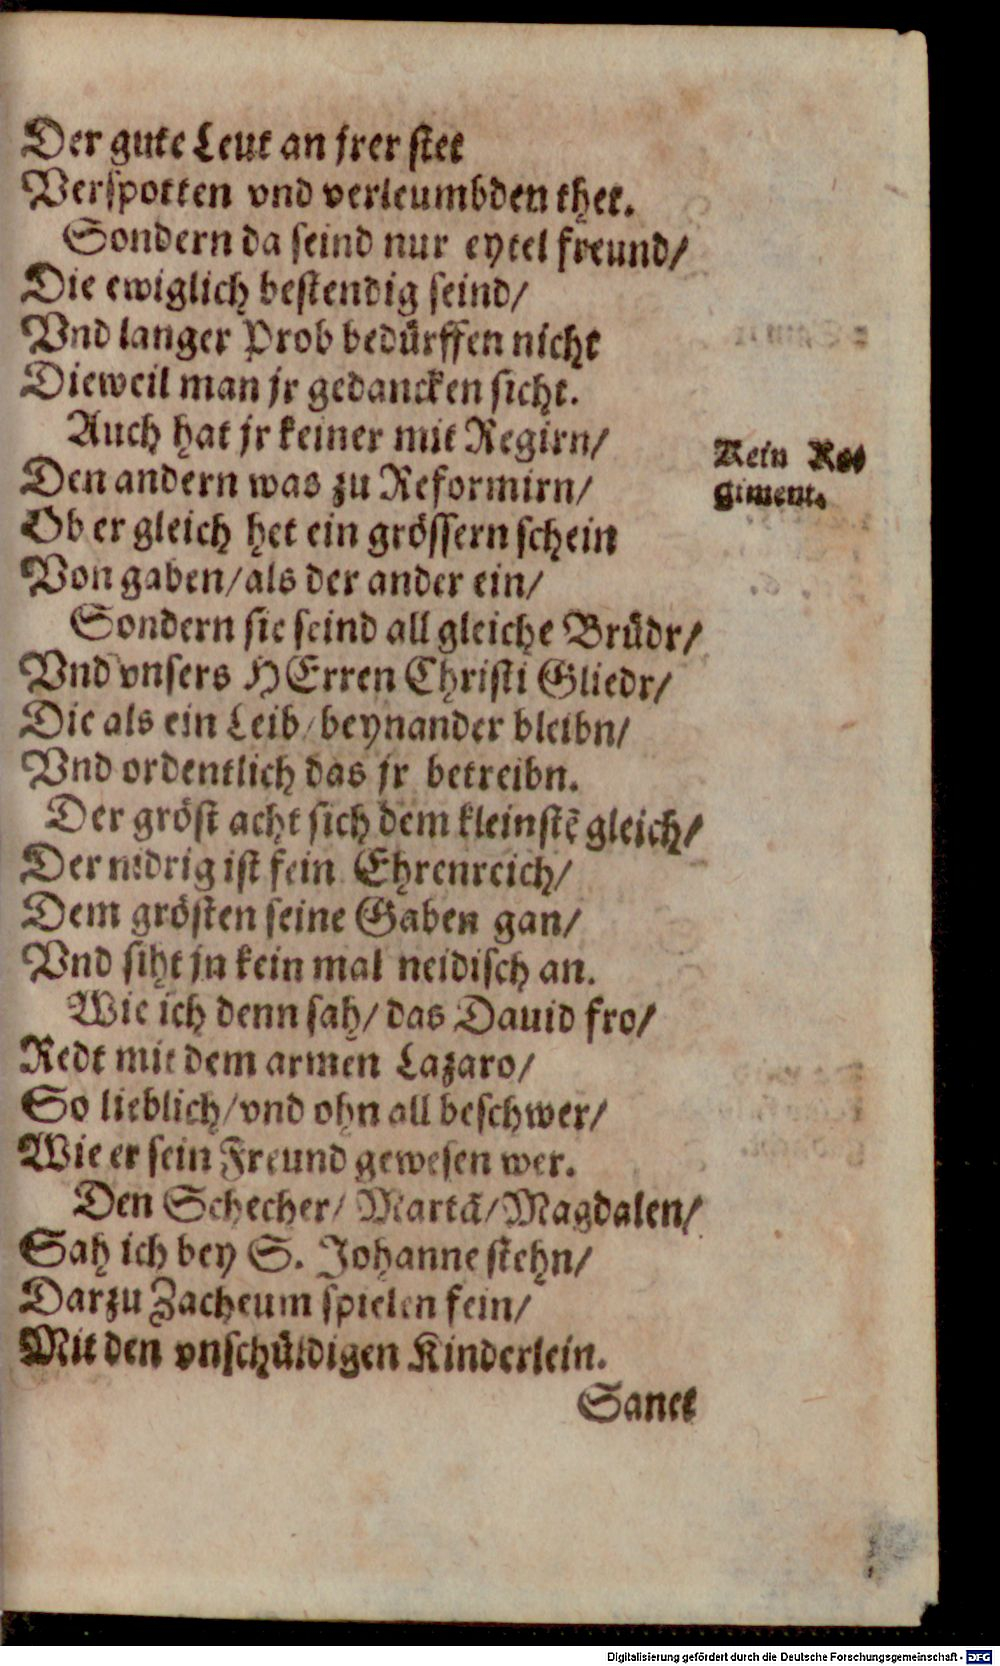 Der gute Leut an jrer stet
Verspotten vnd verleumbden thet.
Sondern da seind nur eytel freund/
Die ewiglich bestendig seind/
Vnd langer Prob bedürffen nicht
Dieweil man jr gedancken sicht.
Auch hat jr keiner mit Regirn/
Den andern was zu Reformirn/
Ob er gleich het ein grössern schein
Von gaben/als der ander ein/
Sondern sie seind all gleiche Brüdr/
Vnd vnsers HErren Christi Gliedr/
Die als ein Leib/beynander bleibn/
Vnd ordentlich das jr betreibn.
Der gröst acht sich dem kleinstẽ gleich/
Der nidrig ist fein Ehrenreich/
Dem grösten seine Gaben gan/
Vnd siht jn kein mal neidisch an.
Wie ich denn sah/das Dauid fro/
Redt mit dem armen Lazaro/
So lieblich/vnd ohn all beschwer/
Wie er sein Freund gewesen wer.
Den Schecher/Martã/Magdalen/
Sah ich bey S. Johanne stehn/
Darzu Zacheum spielen fein/
Mit den vnschüldigen Kinderlein.
Sanct
Kein Re=
giment.
Digitalisierung gefördert durch die Deutsche Forschungsgemeinschaft - DFG